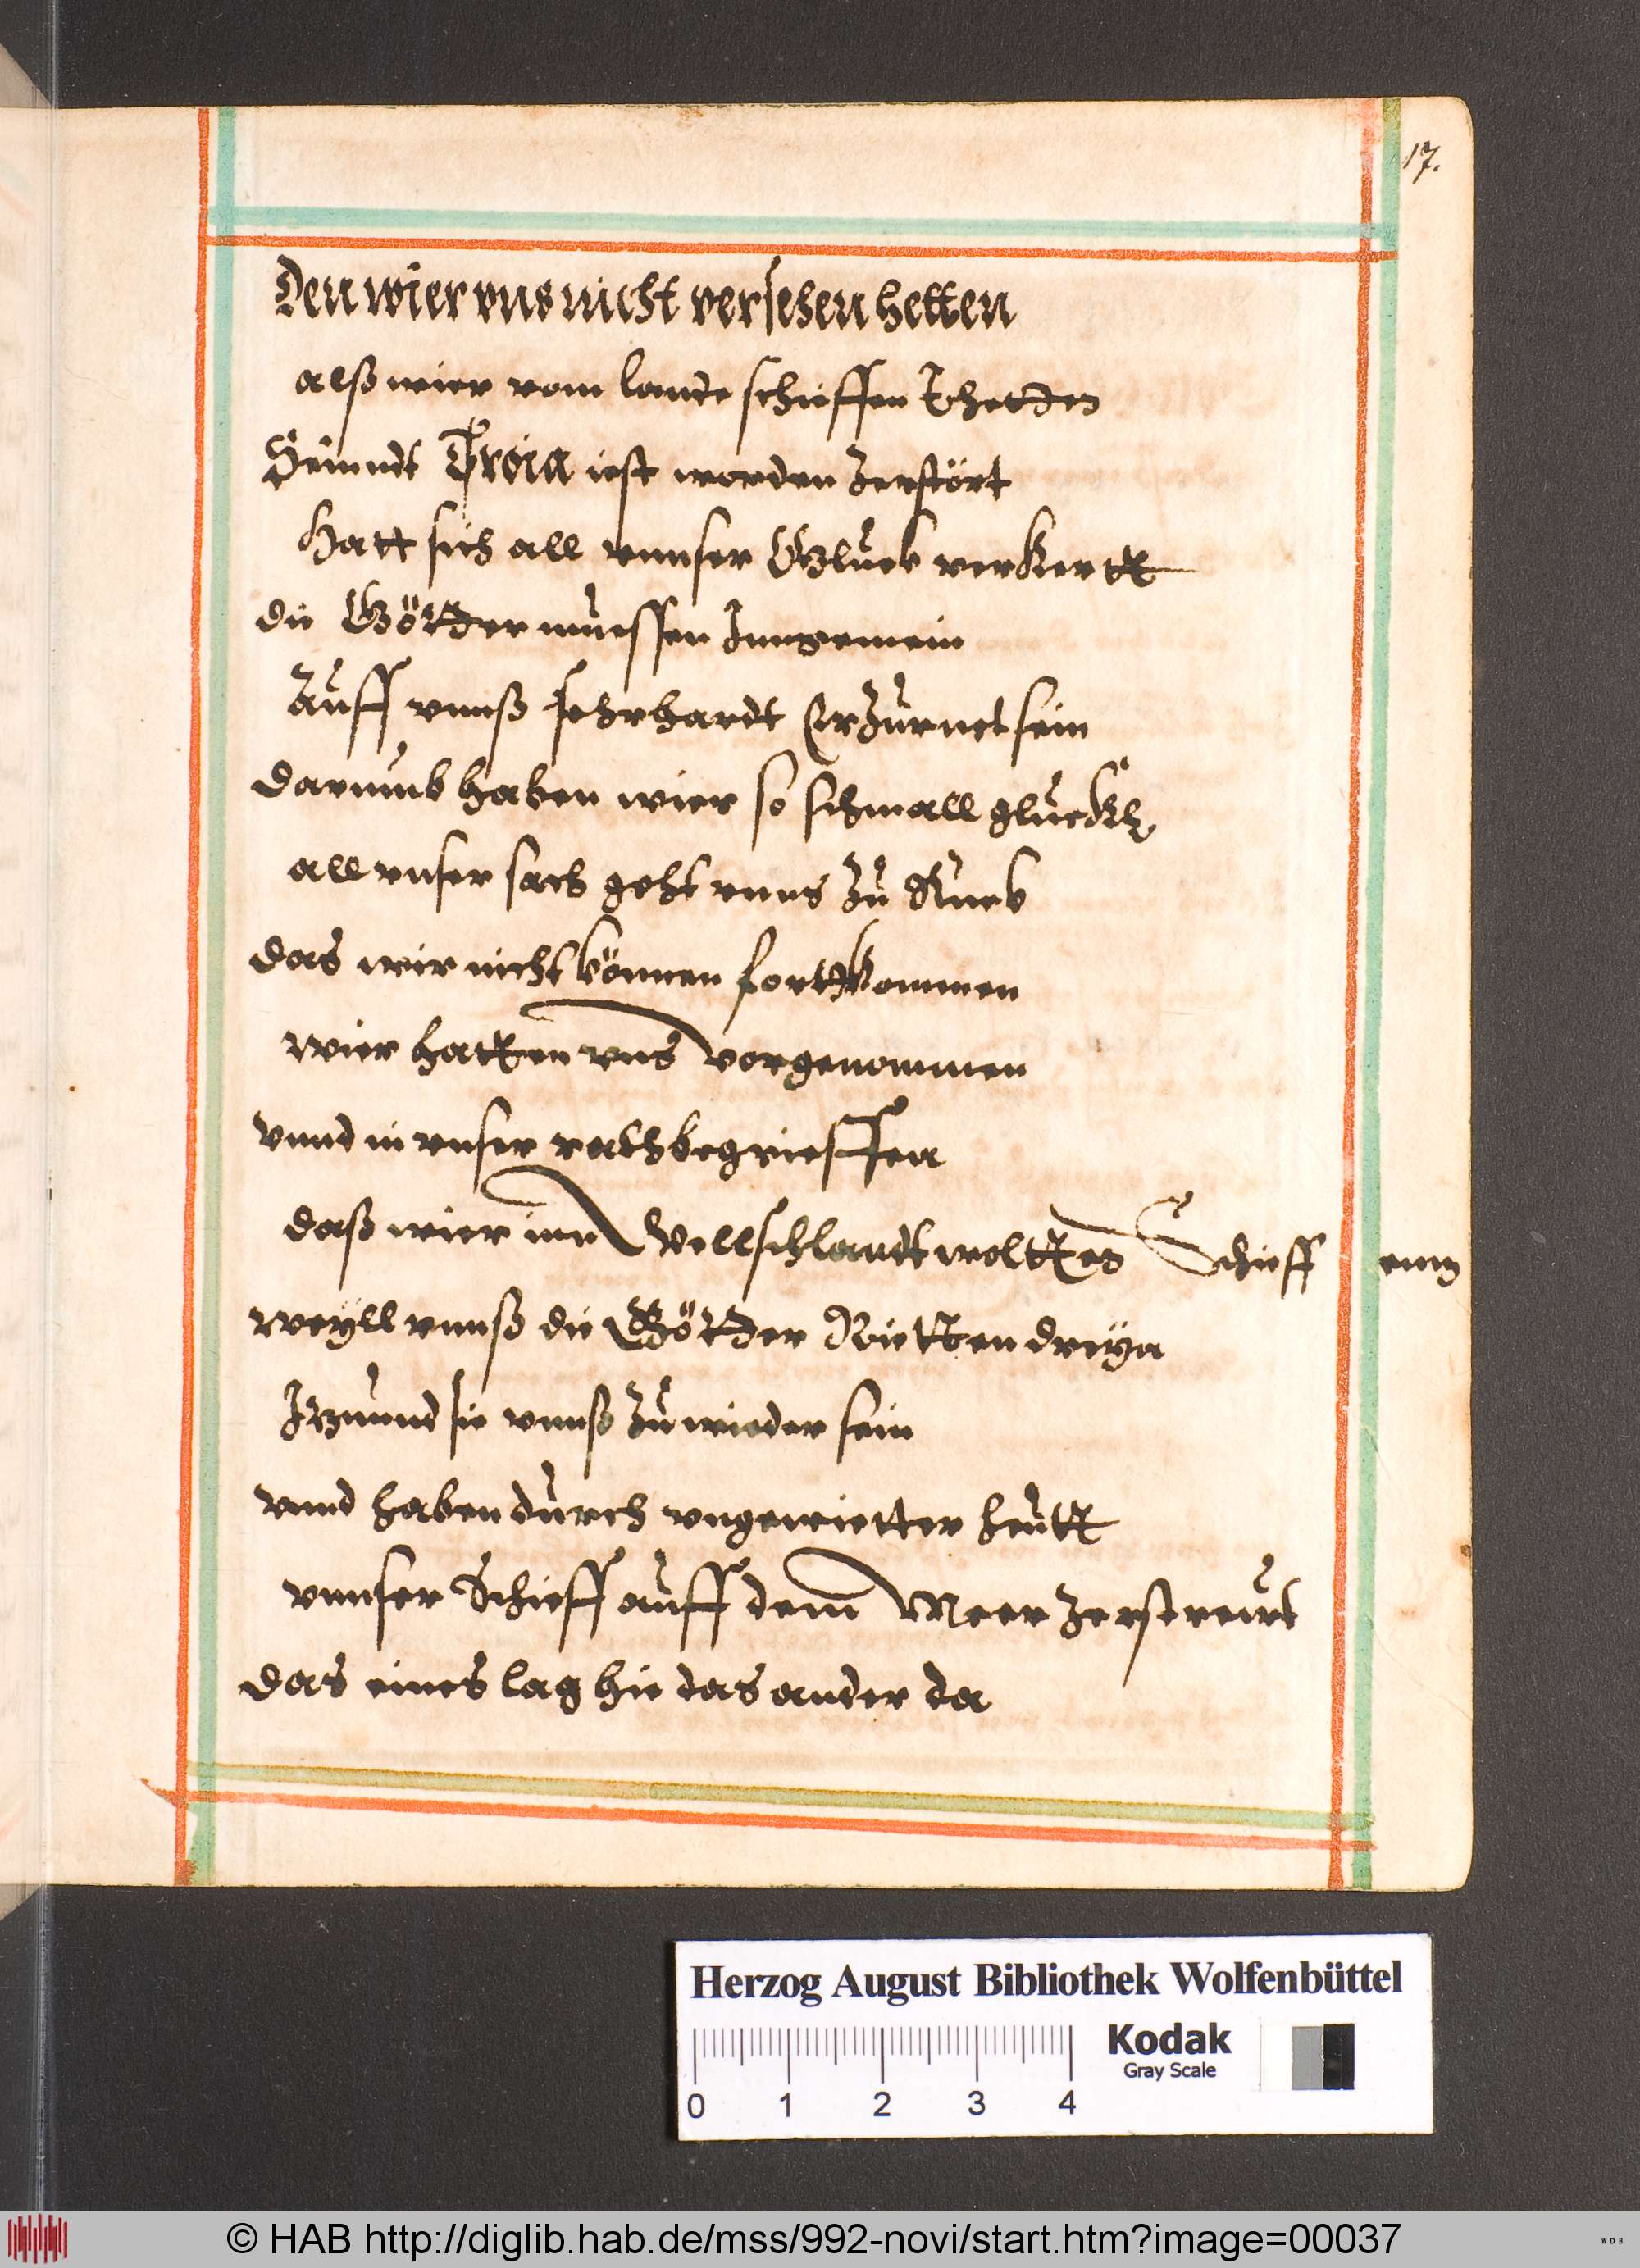 17.
Den wier vns nicht versehen hetten
alß wier vom lande schieffen Thetden
Seinndt Troia ist worden Zerstört
Hatt sich all vnnser Glück verkertt
die Götder müessen Inngemein
Auff vnnß sehr hardt Erzürnet sein
darumb haben wier so schmall glück
all vnser sach geht vnns Zu Rück
das wir nicht können fortkommen
wier hatten vns vorgenommen
vnnd in vnser rath begrieffen
daß wier inn Wellschlandt woltten Schieffenn
weyll vnnß die Götder Rietten dreyn
Itzunnd sie vnnß Zu wieder sein
vnnd haben durch vngewietter heutt
vnnser Schieff auff dem Meer Zerstreüet
das eines lag hie das ander da
Herzog August Bibliothek Wolfenbüttel
Kodak
Gray Scale
0 1 2 3 4
© HAB http://diglib.hab.de/mss/992-novi/start.htm?image=00037
WDB